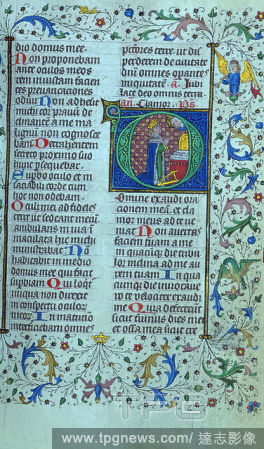 dio domus mee.
Non proponebam
ante oculos meos
rem iniustam facien
tes prevaricaciones
odiui Non adhesit
michi cor prauū de
clinante a me ma
lignū non cognosce
bam Detrahentem
secreto proximo suo
hunc psequebar.
Supbo oculo et in
saciabili corde cum
hoc non edebam
Oculi mei ad fideles
terre ut sedeant mecū
ambulans in uia ī
maculata hic michi
ministrabat Nō
habitabit in medio
domus mee qui facit
supbiam Qui loqtur
iniqua non direxit
in conspectu oculoꝝ
meoꝝ In matutino
interficiebam omnes
pctores terre ut dis
perderem de ciuitate
dnī omnes opantes
iniquitatē a Iubi
late deo omnis terra
an Clamor ps
Domine exaudi ora
cionem meā et cla
mor meus ad te ue
niat Non auertas
faciem tuam a me
in quacūque die tribu
lor inclina ad me au
rem tuam In qua
cūque die inuocaue
ro te velociter exaudi
me Quia defecerūt
sicut fumus dies mei
et ossa mea sicut cre
TPG
www.tpgnews.com / 達志影像